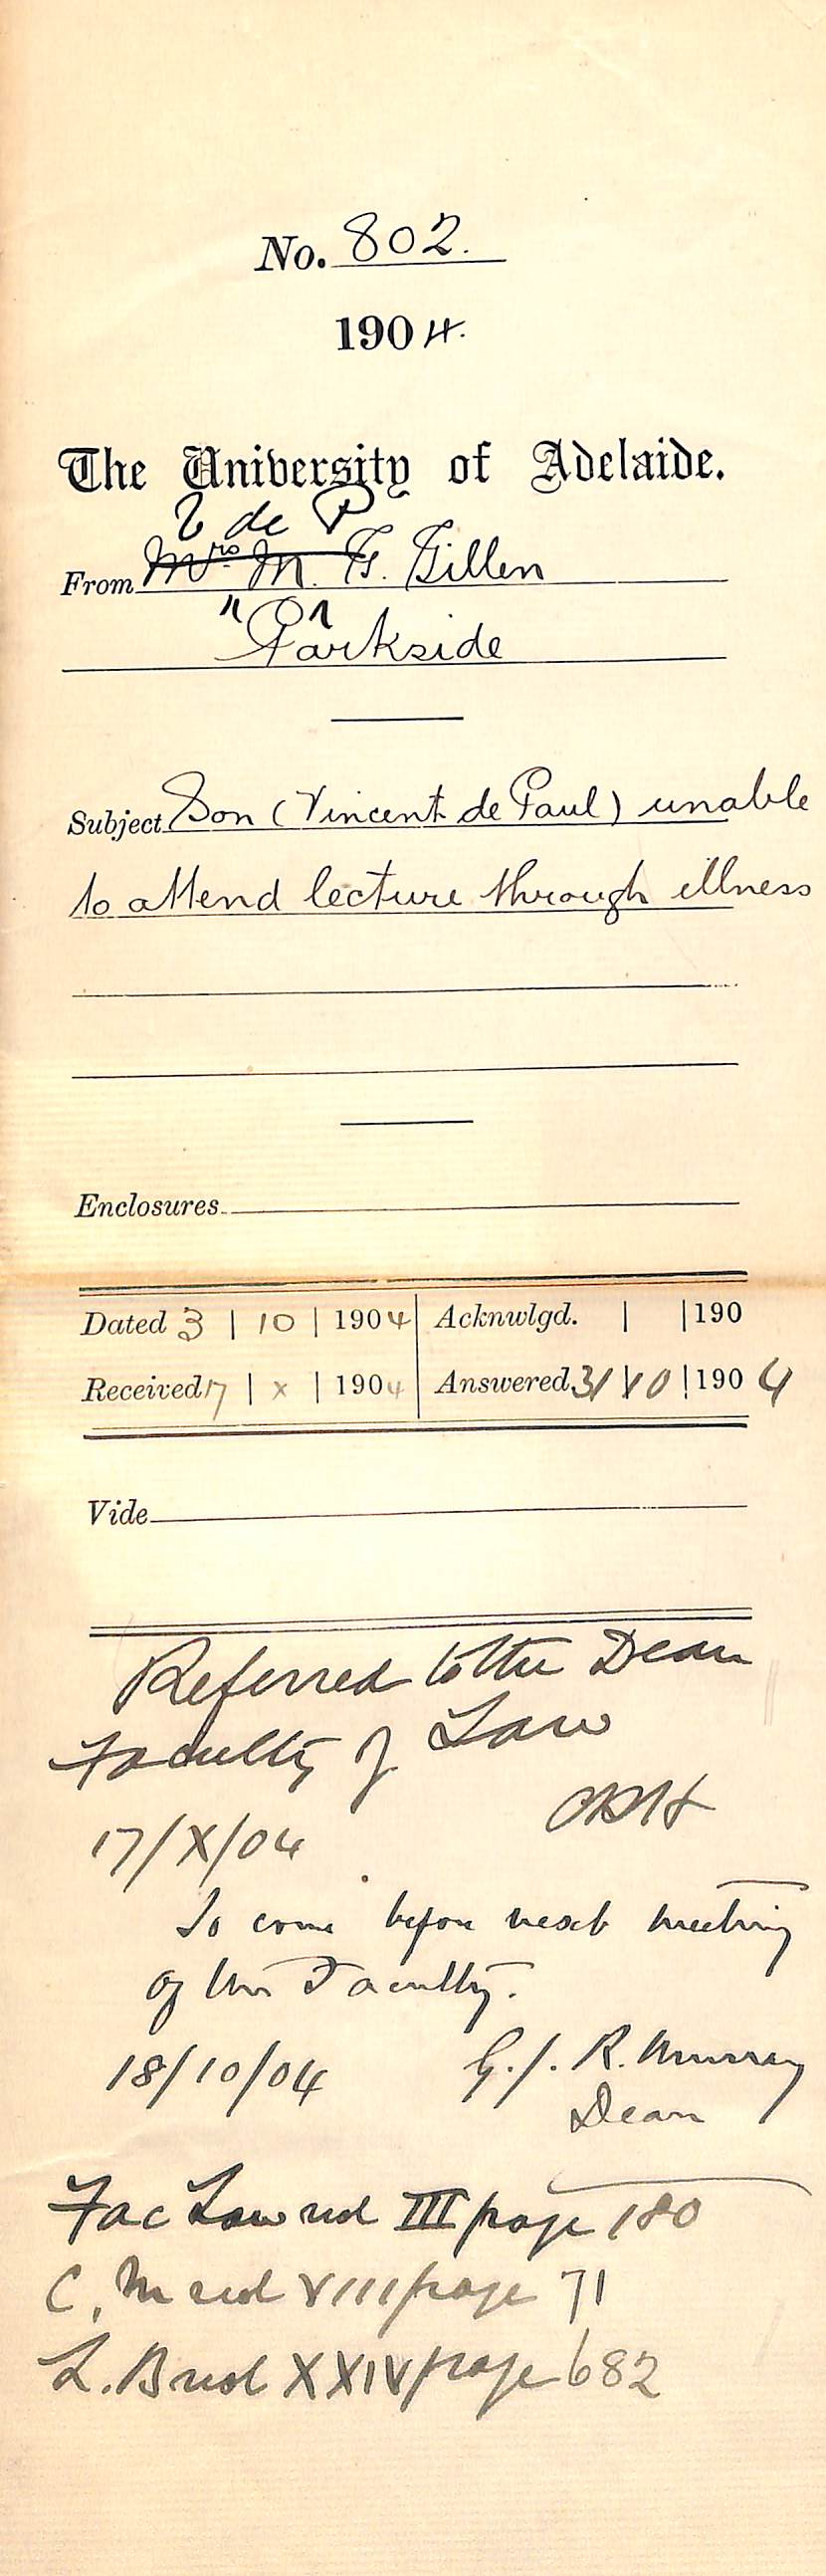 No. 802.
1904.
The University of Adelaide.
V de P
From Mrs. M. F. Gillen
"Parkside
Subject Son (Vincent de Paul) unable
to attend lecture through illness
Enclosures
Dated 3 | 10 | 1904 Acknwlgd. | | 190
Received 17 | X | 1904 Answered 31 | 10 | 1904
Vide
Referred to the Dean
Faculty of Law
17/X/04
To come before next meeting
of the Faculty.
18/10/04 G. J. R. Murray
Dean
Fac Law vol III page 180
C. M vol VIII page 71
L. B vol XXIV page 682